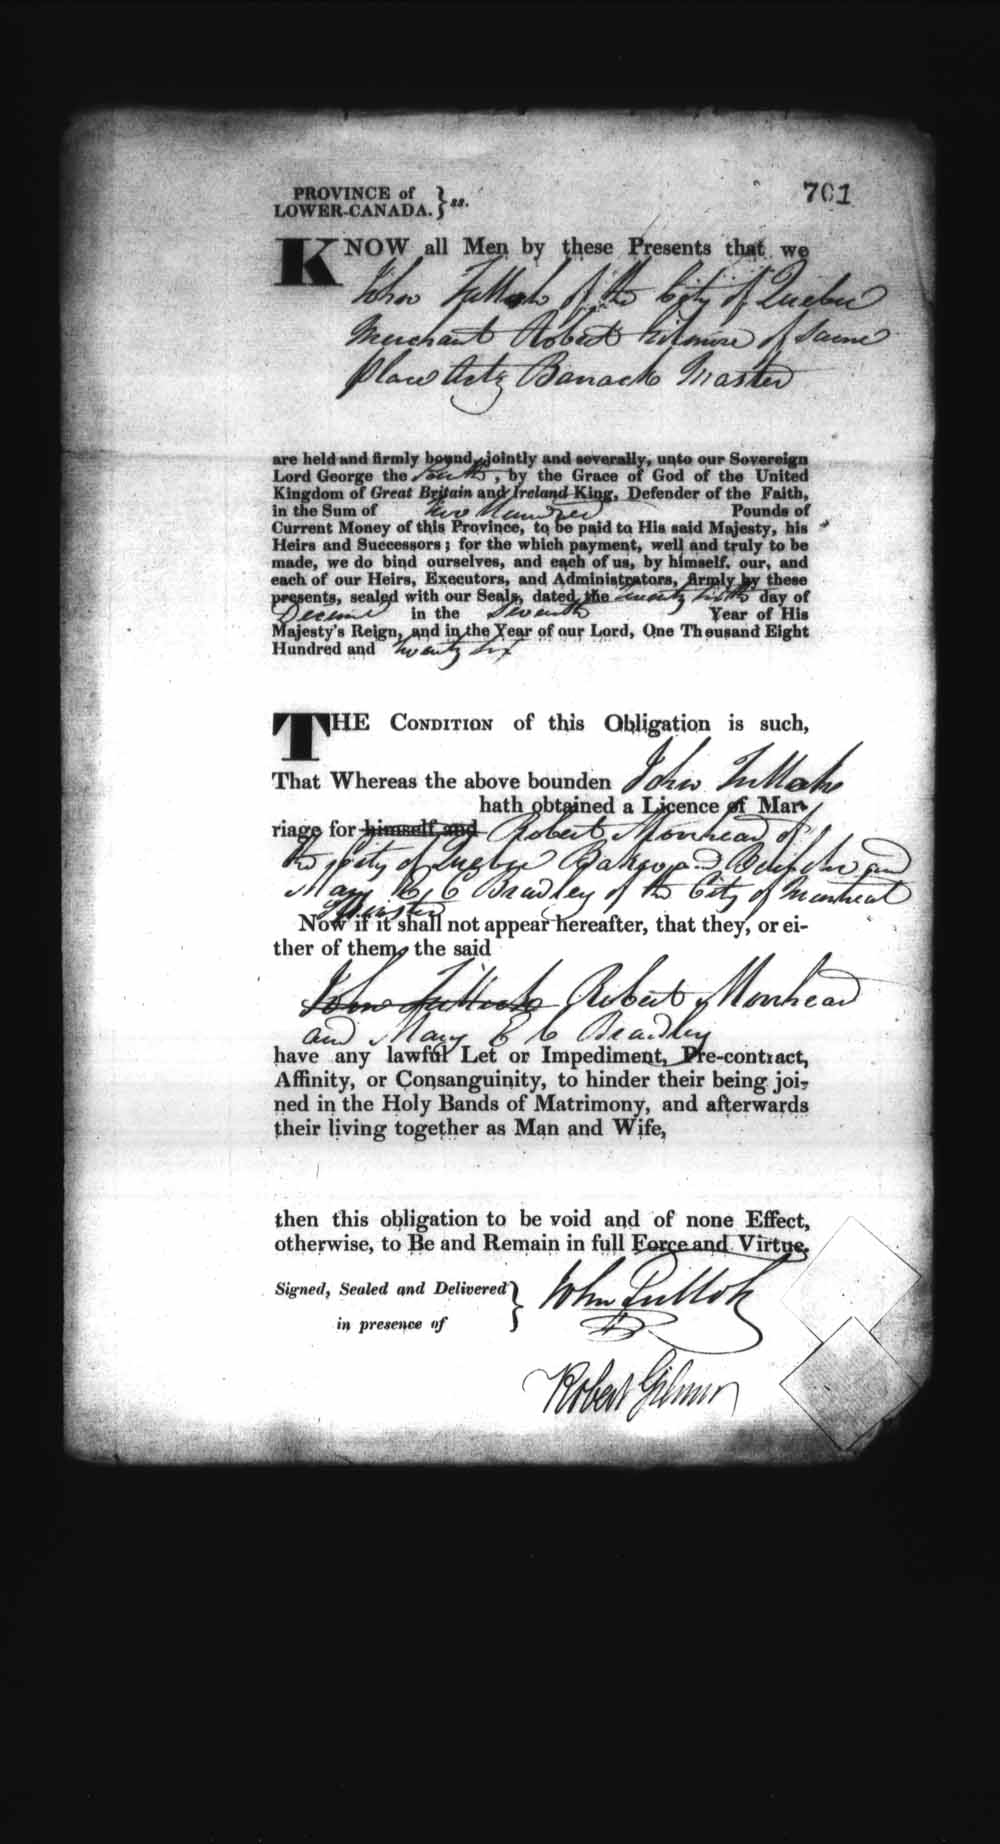 PROVINCE of
LOWER-CANADA. } ss.
701
KNOW all Men by these Presents that we
John Tulloch of the City of Quebec
Merchant Robert Gilmore of same
place Barrack Master
are held and firmly bound, jointly and severally, unto our Sovereign
Lord George the Fourth, by the Grace of God of the United
Kingdom of Great Britain and Ireland King, Defender of the Faith,
in the Sum of Two Hundred Pounds of
Current Money of this Province, to be paid to His said Majesty, his
Heirs and Successors; for the which payment, well and truly to be
made, we do bind ourselves, and each of us, by himself, our, and
each of our Heirs, Executors, and Administrators, firmly by these
presents, sealed with our Seals, dated the Twenty day of
in the Seventh Year of His
Majesty's Reign, and in the Year of our Lord, One Thousand Eight
Hundred and twenty six
THE CONDITION of this Obligation is such,
That Whereas the above bounden John Tulloch
hath obtained a Licence of Mar-
riage for himself and Robert Moorhead of
the City of Quebec Baker and and
Mary E C Bradley of the City of Montreal
Spinster
Now if it shall not appear hereafter, that they, or ei-
ther of them, the said
John Tulloch Robert Moorhead
and Mary E C Bradley
have any lawful Let or Impediment, Pre-contract,
Affinity, or Consanguinity, to hinder their being joi-
ned in the Holy Bands of Matrimony, and afterwards
their living together as Man and Wife,
then this obligation to be void and of none Effect,
otherwise, to Be and Remain in full Force and Virtue.
Signed, Sealed and Delivered }
in presence of
John Tulloch
Robert Gilmor